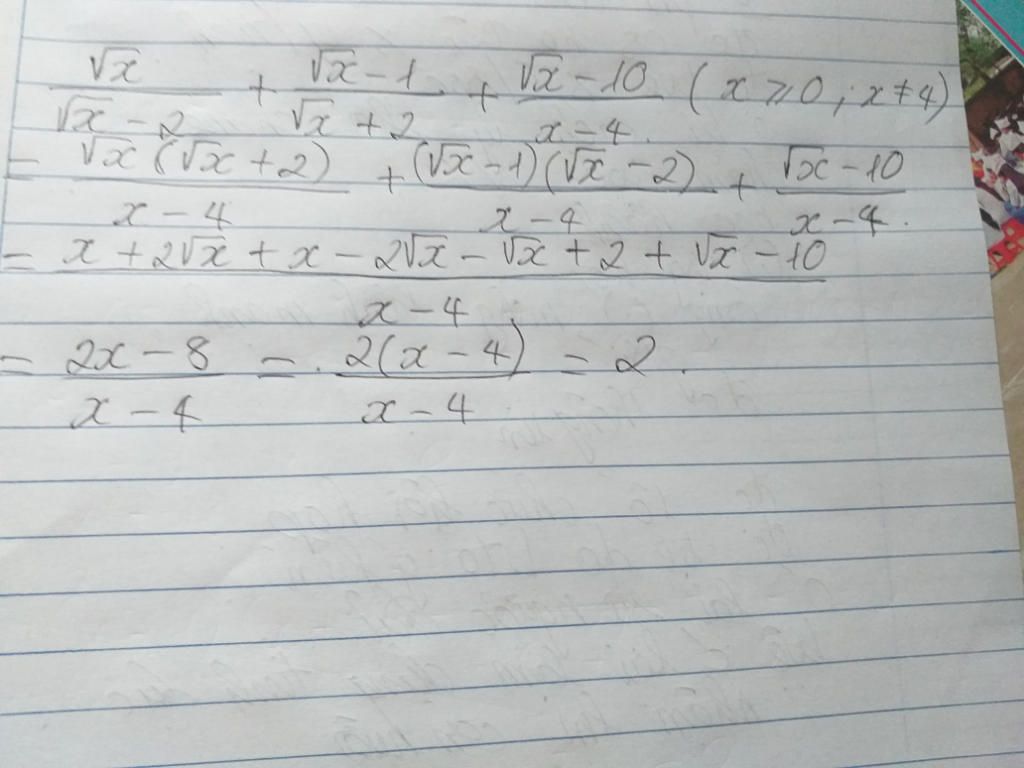 √x / (√x − 2) + (√x − 1) / (√x + 2) + (√x − 10) / (x − 4) (x ⩾ 0 ; x ≠ 4)
= √x (√x + 2) / (x − 4) + (√x − 1)(√x − 2) / (x − 4) + (√x − 10) / (x − 4).
= (x + 2√x + x − 2√x − √x + 2 + √x − 10) / (x − 4)
= (2x − 8) / (x − 4) = 2(x − 4) / (x − 4) = 2.